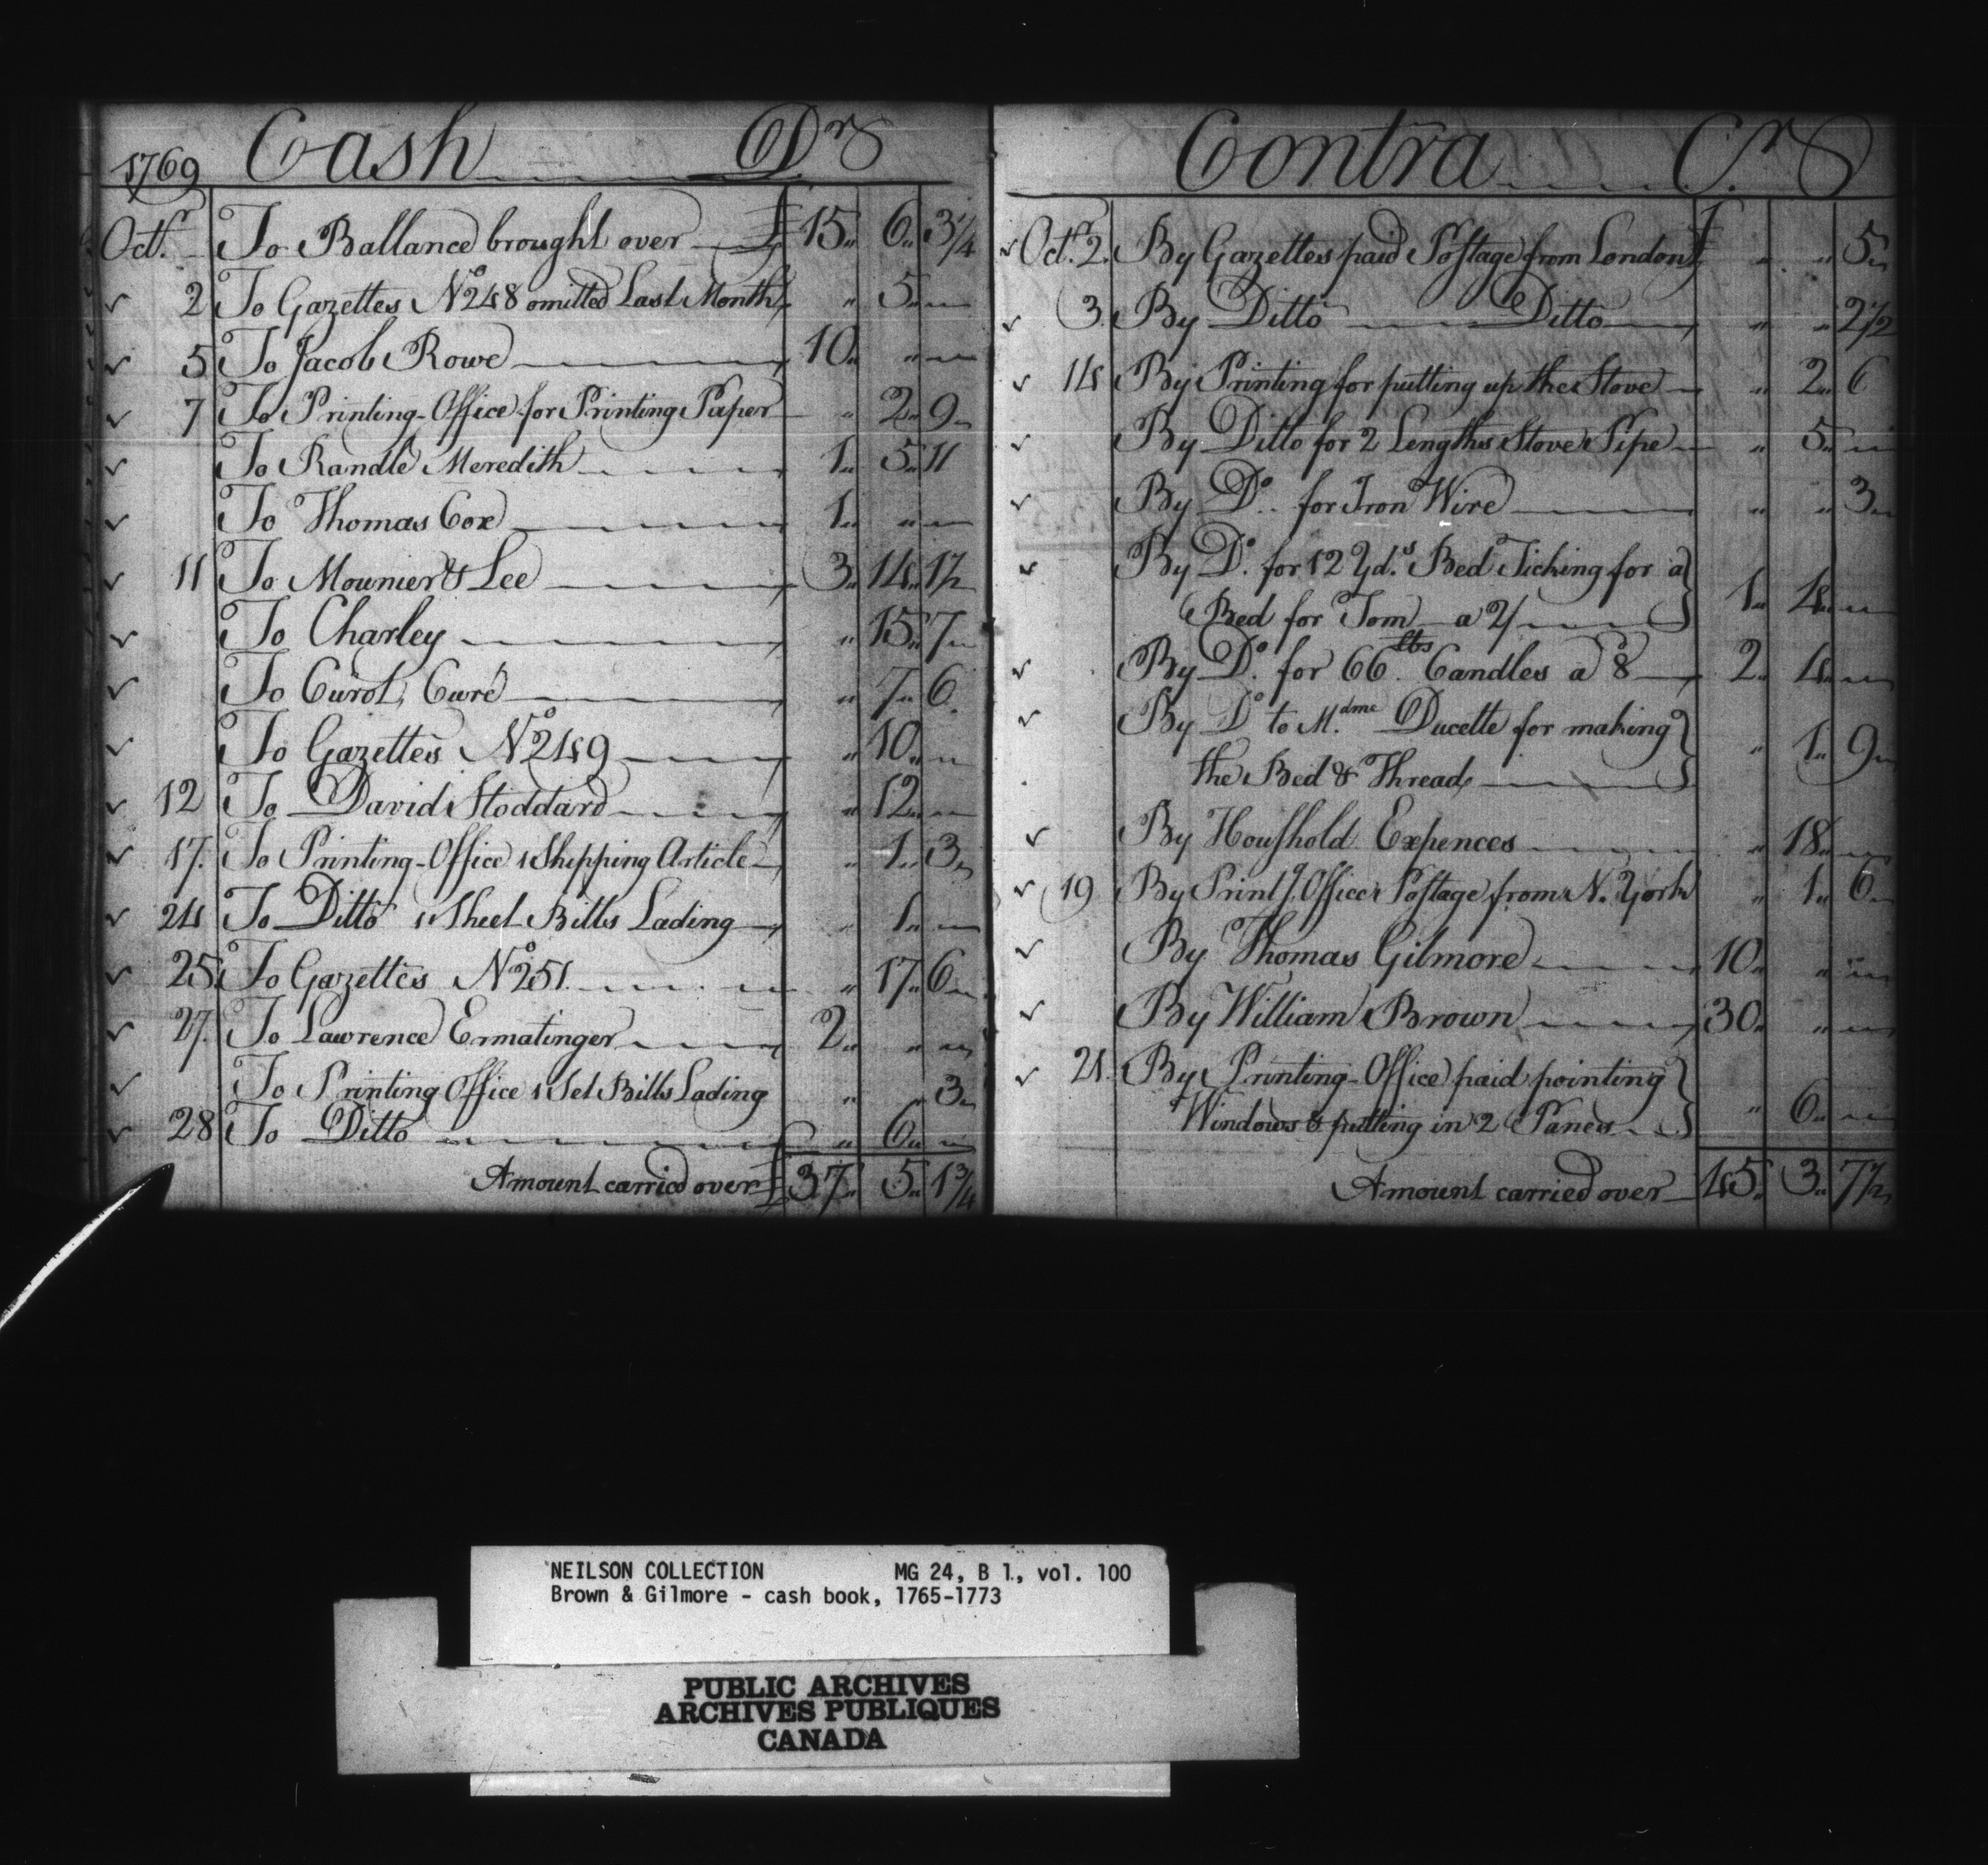 1769 Cash Drs
Octr. To Ballance brought over £ 15 „ 6 „ 3 1/4
2 To Gazettes No 248 omitted Last Month „ 5 „ „
5 To Jacob Rowe 10 „ „ „
7 To Printing-Office for Printing Paper „ 2 „ 9
To Randle Meredith 1 „ 5 „ 11
To Thomas Cox 1 „ „ „
11 To Mounier & Lee 3 „ 14 „ 1 1/2
To Charley „ 15 „ 7
To Curot, Curé „ 7 „ 6
To Gazettes No 249 „ 10 „ „
12 To David Stoddard „ 12 „ „
17. To Printing-Office 1 Shipping Article „ 1 „ 3
24 To Ditto 1 Sheet Bills Lading „ 1 „ „
25. To Gazettes No 251. „ 17 „ 6
27. To Lawrence Ermatinger 2 „ „ „
To Printing Office 1 Set Bills Lading „ „ 3
28 To Ditto „ 6 „ „
Amount carried over £ 37 „ 5 „ 1 3/4
Contra Crs
Octr. 2. By Gazettes paid Postage from London £ „ „ 5
3. By Ditto Ditto „ „ 2 1/2
14 By Printing for putting up the Stove „ 2 „ 6
By Ditto for 2 Lengths Stove Pipe „ 5 „ „
By Do. for Iron Wire „ „ 3
By Do. for 12 Yds. Bed Ticking for a
Bed for Tom a 2/ 1 „ 4 „ „
By Do. for 66 lbs. Candles a 8 2 „ 4 „ „
By Do to Mdme. Ducette for making
the Bed & Thread „ 1 „ 9
By Houshold Expences „ 18 „ „
19 By Printg. Office Postage from N. York „ 1 „ 6
By Thomas Gilmore 10 „ „ „
By William Brown 30 „ „ „
21. By Printing-Office paid pointing
Windows & putting in 2 Panes „ 6 „ „
Amount carried over 45 „ 3 „ 7 1/2
NEILSON COLLECTION MG 24, B 1, vol. 100
Brown & Gilmore - cash book, 1765-1773
PUBLIC ARCHIVES
ARCHIVES PUBLIQUES
CANADA